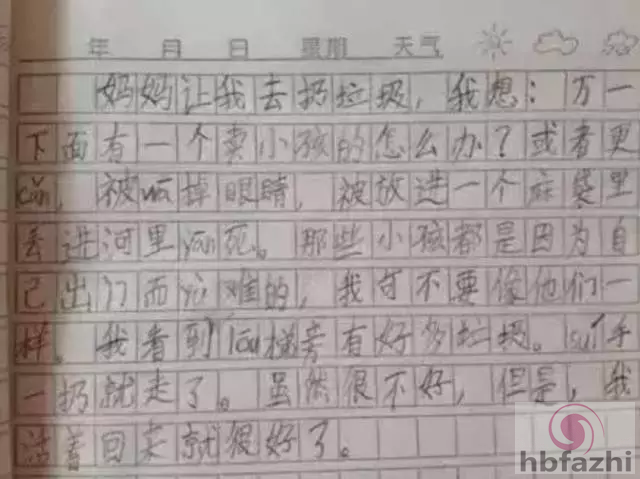 年 月 日 星期 天气
妈妈让我去扔垃圾，我想：万一
下面有一个卖小孩的怎么办？或者更
cǎn，被wā掉眼睛，被放进一个麻袋里
丢进河里yān死。那些小孩都是因为自
己出门而yù难的，我可不要像他们一
样。我看到lóu梯旁有好多垃圾。suí手
一扔就走了。虽然很不好，但是，我
活着回来就很好了。
hbfazhi